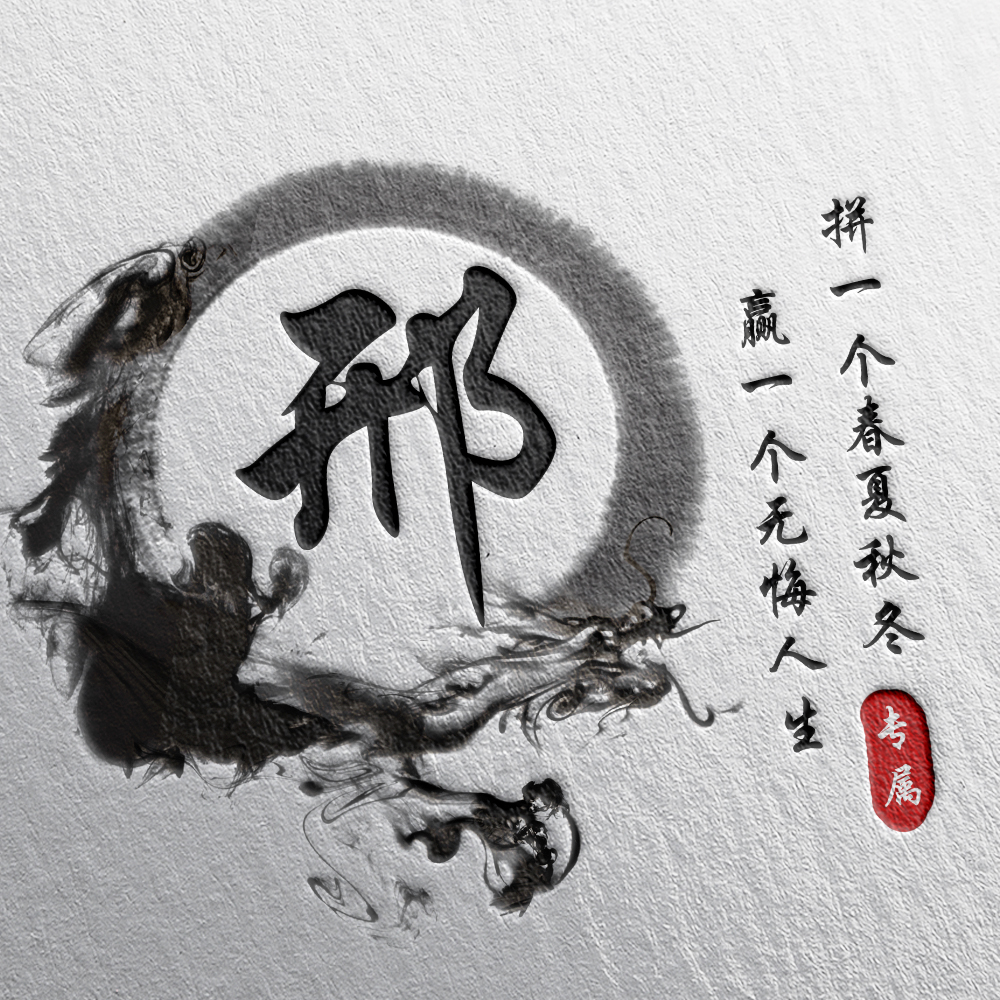 邢
拼一个春夏秋冬
赢一个无悔人生
专属